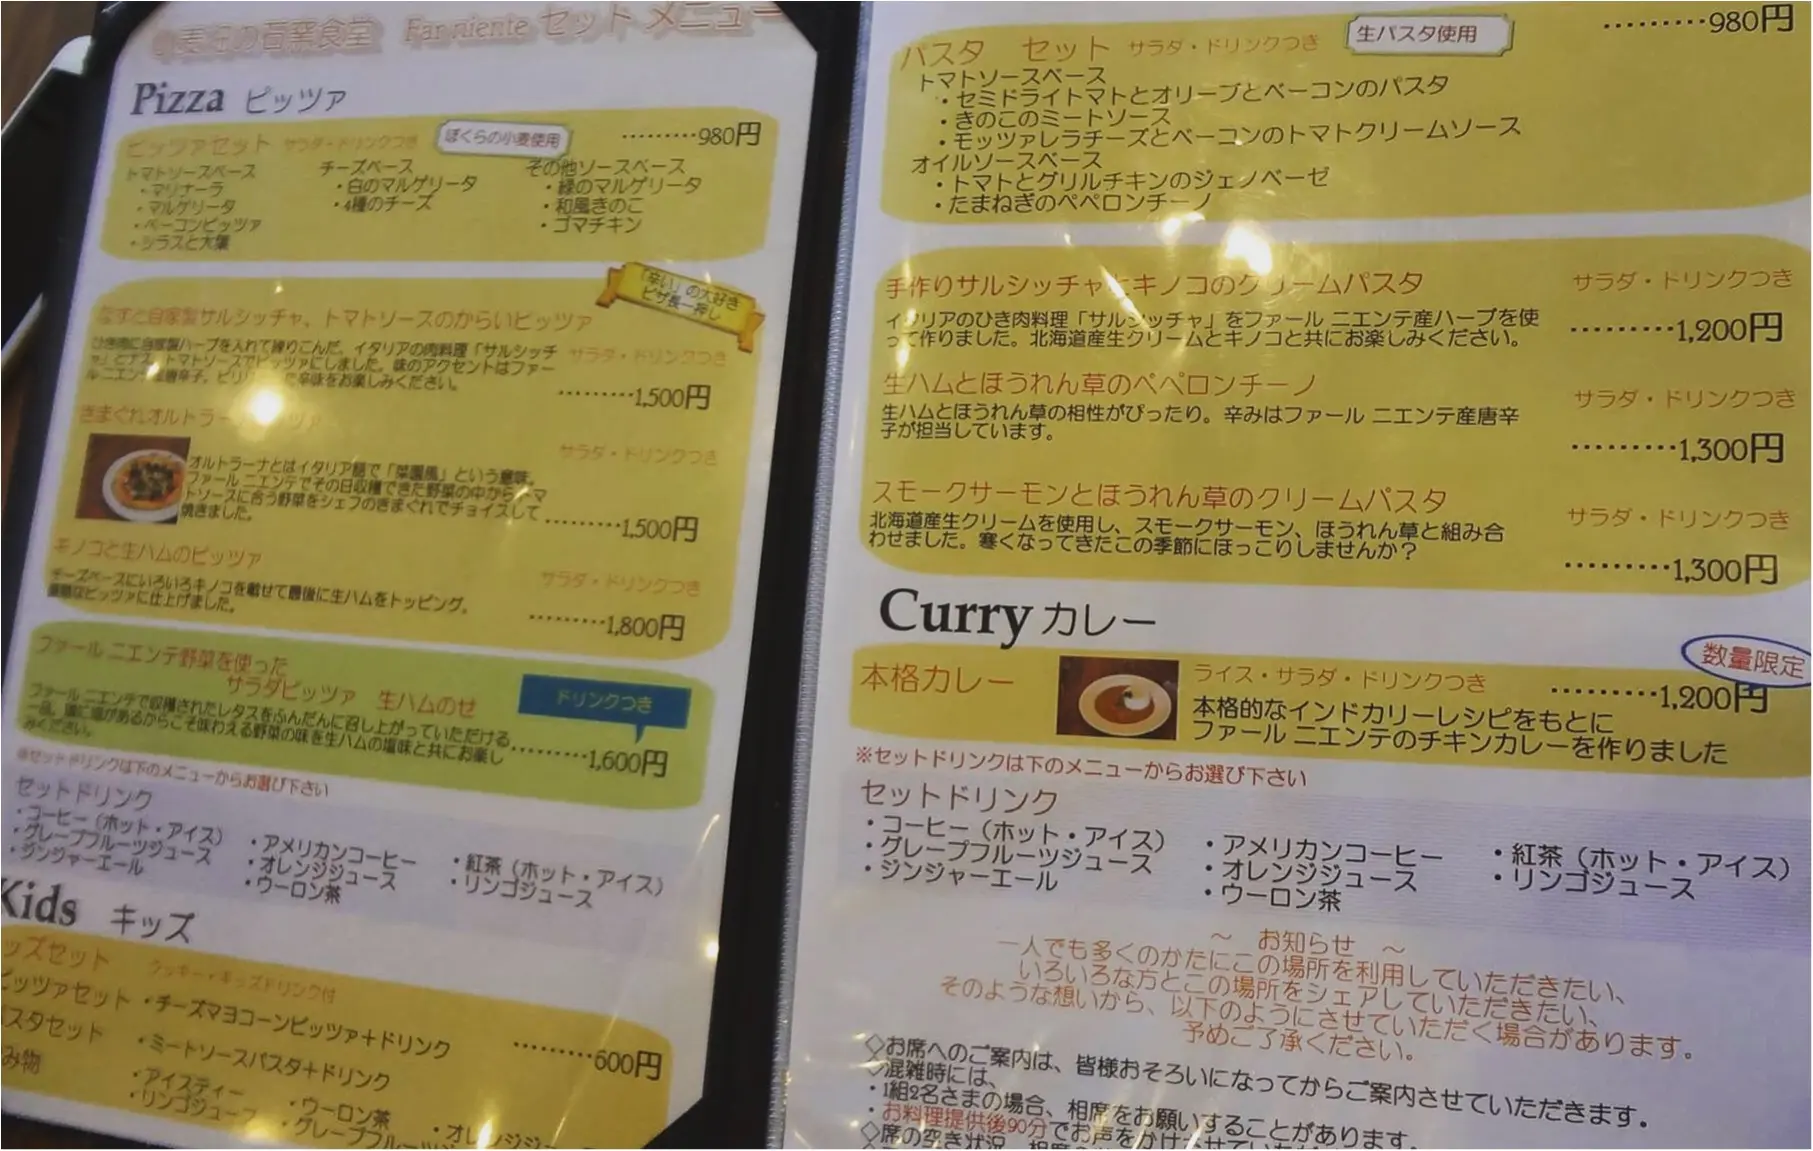 麦畑の石窯食堂 Far niente セット メニュー
Pizza ピッツァ
ピッツァセット サラダ・ドリンクつき ぼくらの小麦使用 ………980円
トマトソースベース
・マリナーラ
・マルゲリータ
・ベーコンピッツァ
・シラスと大葉
チーズベース
・白のマルゲリータ
・4種のチーズ
その他ソースベース
・緑のマルゲリータ
・和風きのこ
・ゴマチキン
「辛い」の大好き
ピザ長一押し
なすと自家製サルシッチャ、トマトソースのからいピッツァ
ひき肉に自家製ハーブを入れて練りこんだ、イタリアの肉料理「サルシッチ
ャ」とナス、トマトソースでピッツァにしました。味のアクセントはファー
ル ニエンテ産唐辛子。ピリリ 辛味をお楽しみください。
サラダ・ドリンクつき
………1,500円
きまぐれオルトラーナピッツァ
サラダ・ドリンクつき
オルトラーナとはイタリア語で「菜園風」という意味。
ファール ニエンテでその日収穫できた野菜の中からトマ
トソースに合う野菜をシェフのきまぐれでチョイスして
焼きました。
………1,500円
キノコと生ハムのピッツァ
サラダ・ドリンクつき
チーズベースにいろいろキノコを載せて最後に生ハムをトッピング。
なピッツァに仕上げました。
………1,800円
ファール ニエンテ野菜を使った
サラダピッツァ 生ハムのせ
ドリンクつき
ファール ニエンテで収穫されたレタスをふんだんに召し上がっていただける
一品。畑に窯があるからこそ味わえる野菜の味を生ハムの塩味と共にお楽し
みください。
………1,600円
※セットドリンクは下のメニューからお選び下さい
セットドリンク
・コーヒー（ホット・アイス）
・グレープフルーツジュース
・ジンジャーエール
・アメリカンコーヒー
・オレンジジュース
・ウーロン茶
・紅茶（ホット・アイス）
・リンゴジュース
Kids キッズ
ッズセット クッキー・キッズドリンク付
ピッツァセット ・チーズマヨコーンピッツァ＋ドリンク
スタセット ・ミートソースパスタ＋ドリンク
………600円
み物
・アイスティー
・リンゴジュース
・ウーロン茶
・グレープフルーツ
・オレンジジ
パスタ セット サラダ・ドリンクつき 生パスタ使用 ………980円
トマトソースベース
・セミドライトマトとオリーブとベーコンのパスタ
・きのこのミートソース
・モッツァレラチーズとベーコンのトマトクリームソース
オイルソースベース
・トマトとグリルチキンのジェノベーゼ
・たまねぎのペペロンチーノ
手作りサルシッチャとキノコのクリームパスタ
サラダ・ドリンクつき
イタリアのひき肉料理「サルシッチャ」をファール ニエンテ産ハーブを使
って作りました。北海道産生クリームとキノコと共にお楽しみください。
………1,200円
生ハムとほうれん草のペペロンチーノ
サラダ・ドリンクつき
生ハムとほうれん草の相性がぴったり。辛みはファール ニエンテ産唐辛
子が担当しています。
………1,300円
スモークサーモンとほうれん草のクリームパスタ
サラダ・ドリンクつき
北海道産生クリームを使用し、スモークサーモン、ほうれん草と組み合
わせました。寒くなってきたこの季節にほっこりしませんか？
………1,300円
Curry カレー
数量限定
本格カレー
ライス・サラダ・ドリンクつき
………1,200円
本格的なインドカリーレシピをもとに
ファール ニエンテのチキンカレーを作りました
※セットドリンクは下のメニューからお選び下さい
セットドリンク
・コーヒー（ホット・アイス）
・グレープフルーツジュース
・ジンジャーエール
・アメリカンコーヒー
・オレンジジュース
・ウーロン茶
・紅茶（ホット・アイス）
・リンゴジュース
～ お知らせ ～
一人でも多くのかたにこの場所を利用していただきたい、
いろいろな方とこの場所をシェアしていただきたい、
そのような想いから、以下のようにさせていただく場合があります。
予めご了承ください。
◇お席へのご案内は、皆様おそろいになってからご案内させていただきます。
◇混雑時には、
・1組2名さまの場合、相席をお願いすることがあります。
・お料理提供後90分でお声をかけさせていただ
◇席の空き状況、相席の